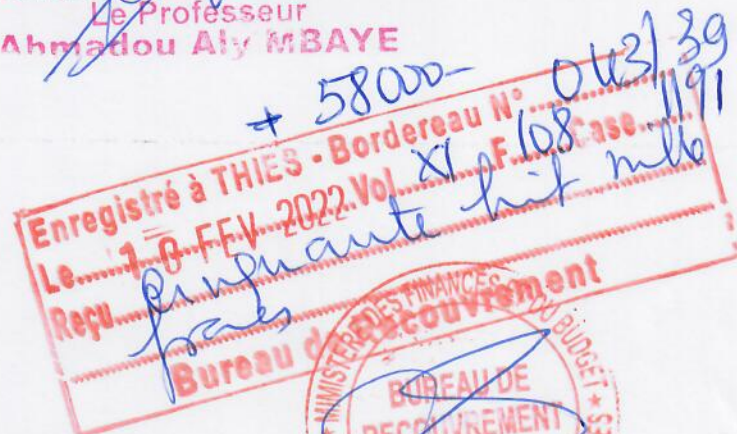 Le Professeur
Ahmadou Aly MBAYE
58000-
Enregistré à THIES - Bordereau N° 043/39
Le 10 FEV 2022 Vol XI F 108 Case 1191
Reçu cinquante huit mille
francs
Bureau de Recouvrement
MINISTERE DES FINANCES DU BUDGET
BUREAU DE
RECOUVREMENT